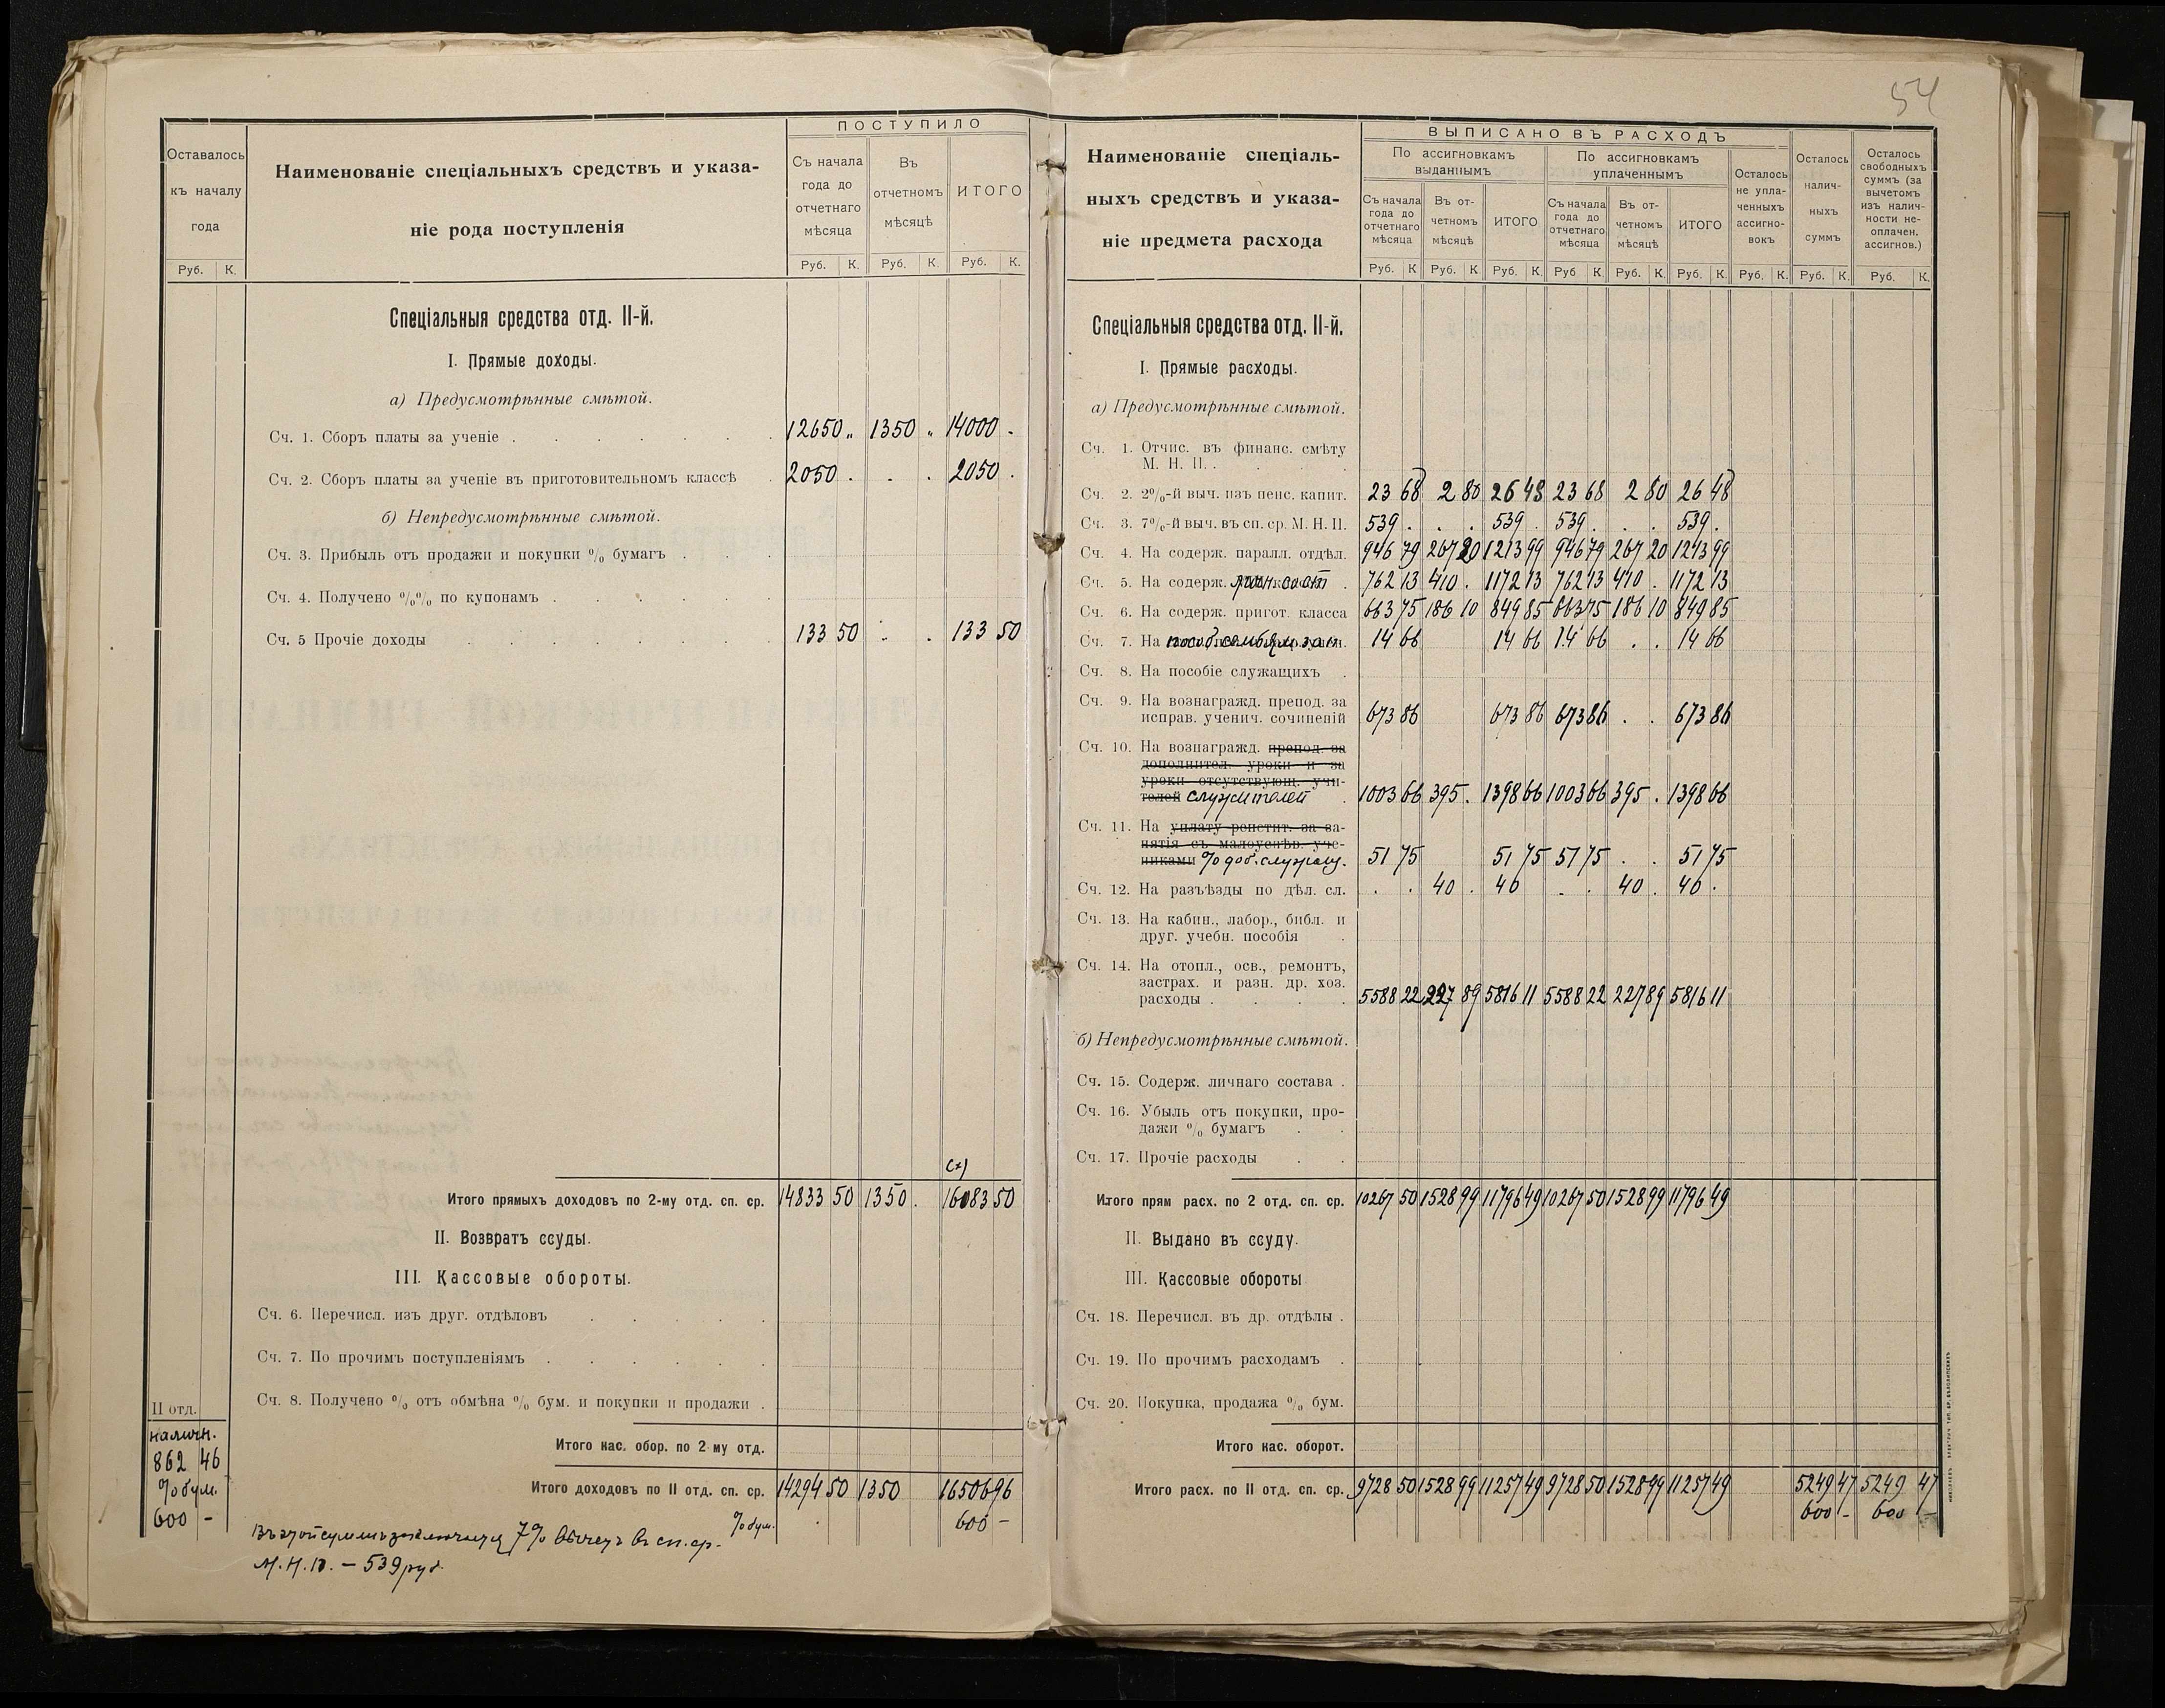 54
ПОСТУПИЛО
Оставалось
къ началу
года
Наименованіе спеціальныхъ средствъ и указа-
ніе рода поступленія
Съ начала
года до
отчетнаго
мѣсяца
Въ
отчетномъ
мѣсяцѣ
ИТОГО
Руб. К. Руб. К. Руб. К. Руб. К.
Спеціальныя средства отд. II-й.
I. Прямые доходы.
а) Предусмотрѣнные смѣтой.
Сч. 1. Сборъ платы за ученіе . 12650 „ 1350 „ 14000 -
Сч. 2. Сборъ платы за ученіе въ приготовительномъ классѣ 2050 . . . 2050 .
б) Непредусмотрѣнные смѣтой.
Сч. 3. Прибыль отъ продажи и покупки % бумагъ
Сч. 4. Получено %% по купонамъ
Сч. 5 Прочіе доходы 133 50 . . 133 50
(×)
Итого прямыхъ доходовъ по 2-му отд. сп. ср. 14833 50 1350 . 16083 50
II. Возвратъ ссуды.
III. Кассовые обороты.
Сч. 6. Перечисл. изъ друг. отдѣловъ
Сч. 7. По прочимъ поступленіямъ
Сч. 8. Получено % отъ обмѣна % бум. и покупки и продажи .
II отд.
наличн.
862 46
% бум.
600 -
Итого кас. обор. по 2 му отд.
Итого доходовъ по II отд. сп. ср. 14294 50 1350 16506 96
% бум. 600 -
Въ этой суммѣ заключается 7% вычетъ въ сп. ср.
М. Н. П. - 539 руб.
Наименованіе спеціаль-
ныхъ средствъ и указа-
ніе предмета расхода
ВЫПИСАНО ВЪ РАСХОДЪ
По ассигновкамъ
выданнымъ
По ассигновкамъ
уплаченнымъ
Съ начала
года до
отчетнаго
мѣсяца
Въ от-
четномъ
мѣсяцѣ
ИТОГО
Съ начала
года до
отчетнаго
мѣсяца
Въ от-
четномъ
мѣсяцѣ
ИТОГО
Осталось
не упла-
ченныхъ
ассигно-
вокъ
Осталось
налич-
ныхъ
суммъ
Осталось
свободныхъ
суммъ (за
вычетомъ
изъ налич-
ности не-
оплачен.
ассигнов.)
Руб. К Руб. К Руб. К. Руб К. Руб. К Руб. К. Руб. К. Руб. К. Руб. К.
Спеціальныя средства отд. II-й.
I. Прямые расходы.
а) Предусмотрѣнные смѣтой.
Сч. 1. Отчис. въ финанс. смѣту
М. Н. П. .
Сч. 2. 2%-й выч. изъ пенс. капит. 23 68 2 80 26 48 23 68 2 80 26 48
Сч. 3. 7%-й выч. въ сп. ср. М. Н. П. 539 . . . 539 . 539 . . . 539 .
Сч. 4. На содерж. паралл. отдѣл. 946 79 267 20 1213 99 946 79 267 20 1213 99
Сч. 5. На содерж. личн. сост 762 13 410 . 1172 13 762 13 410 . 1172 13
Сч. 6. На содерж. пригот. класса 663 75 186 10 849 85 663 75 186 10 849 85
Сч. 7. На пособ. семьям зап. 14 66 14 66 14 66 . . 14 66
Сч. 8. На пособіе служащихъ .
Сч. 9. На вознагражд. препод. за
исправ. ученич. сочиненій 673 86 673 86 673 86 . . 673 86
Сч. 10. На вознагражд. препод. за
дополнител. уроки и за
уроки отсутствующ. учи-
телей служителей . 1003 66 395 . 1398 66 1003 66 395 . 1398 66
Сч. 11. На уплату репетит. за за-
нятія съ малоуспѣв. уче-
никами % доб. служащ. 51 75 51 75 51 75 . . 51 75
Сч. 12. На разъѣзды по дѣл. сл. . . 40 . 40 . . 40 . 40 .
Сч. 13. На кабин., лабор., библ. и
друг. учебн. пособія .
Сч. 14. На отопл., осв., ремонтъ,
застрах. и разн. др. хоз.
расходы . 5588 22 227 89 5816 11 5588 22 227 89 5816 11
б) Непредусмотрѣнные смѣтой.
Сч. 15. Содерж. личнаго состава .
Сч. 16. Убыль отъ покупки, про-
дажи % бумагъ
Сч. 17. Прочіе расходы
Итого прям расх. по 2 отд. сп. ср. 10267 50 1528 99 11796 49 10267 50 1528 99 11796 49
II. Выдано въ ссуду.
III. Кассовые обороты
Сч. 18. Перечисл. въ др. отдѣлы .
Сч. 19. По прочимъ расходамъ .
Сч. 20. Покупка, продажа % бум.
Итого кас. оборот.
Итого расх. по II отд. сп. ср. 9728 50 1528 99 11257 49 9728 50 1528 99 11257 49 5249 47 5249 47
600 - 600 -